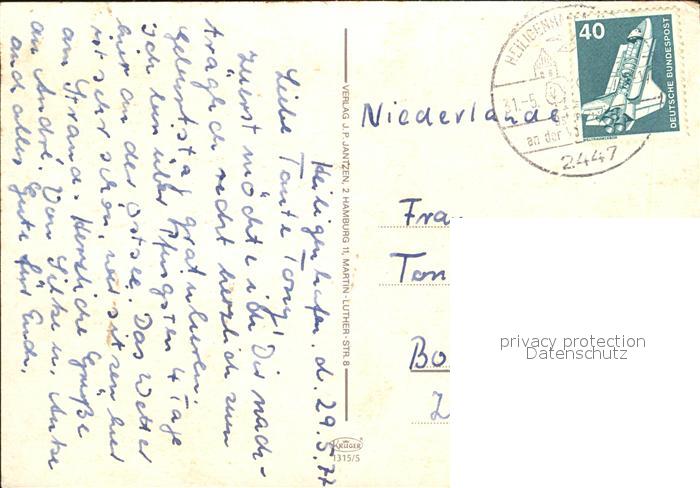 Heiligenhafen, d. 29.5.77
Liebe Tante Tony!
Zuerst möchte ich Dir nach-
träglich recht herzlich zum
Geburtstag gratulieren.
Ich bin über Pfingsten 4 Tage
hier an der Ostsee. Das Wetter
ist sehr schön, wir sitzen hier
am Strand. Herzliche Grüße
an André. Von Silke u. Antke
und alles Gute für Euch.
VERLAG J. P. JANTZEN, 2 HAMBURG 11, MARTIN-LUTHER-STR. 8
KRÜGER
1315/5
HEILIGENHAFEN
31.-5.
an der
2447
40
DEUTSCHE BUNDESPOST
Niederlande
Frau
Ton
Bo
privacy protection
Datenschutz